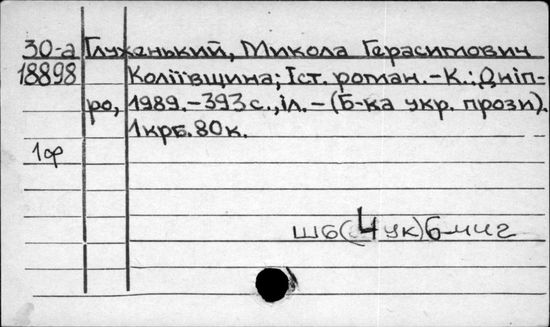 30-а Глухенький, Микола Герасимович
18898 Коліївщина; Іст. роман.-К.: Дніп-
ро, 1989.-393с., іл.-(Б-ка укр. прози).
1крб.80к.
1ф
Ш6(4УК)6-44г